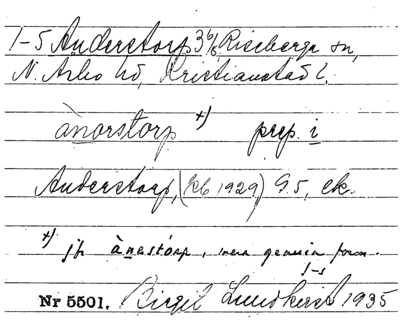 1-5 Anderstorp 3 6/8, Riseberga sn,
N. Åsbo hd, Kristianstad l.
ànorstorp +) prep. i
Anderstorp, (kb 1929) G.5, ek.
+) jf ànastórp, mera genuin form.
1-5
Nr 5501. Birgit Lundkvist 1935